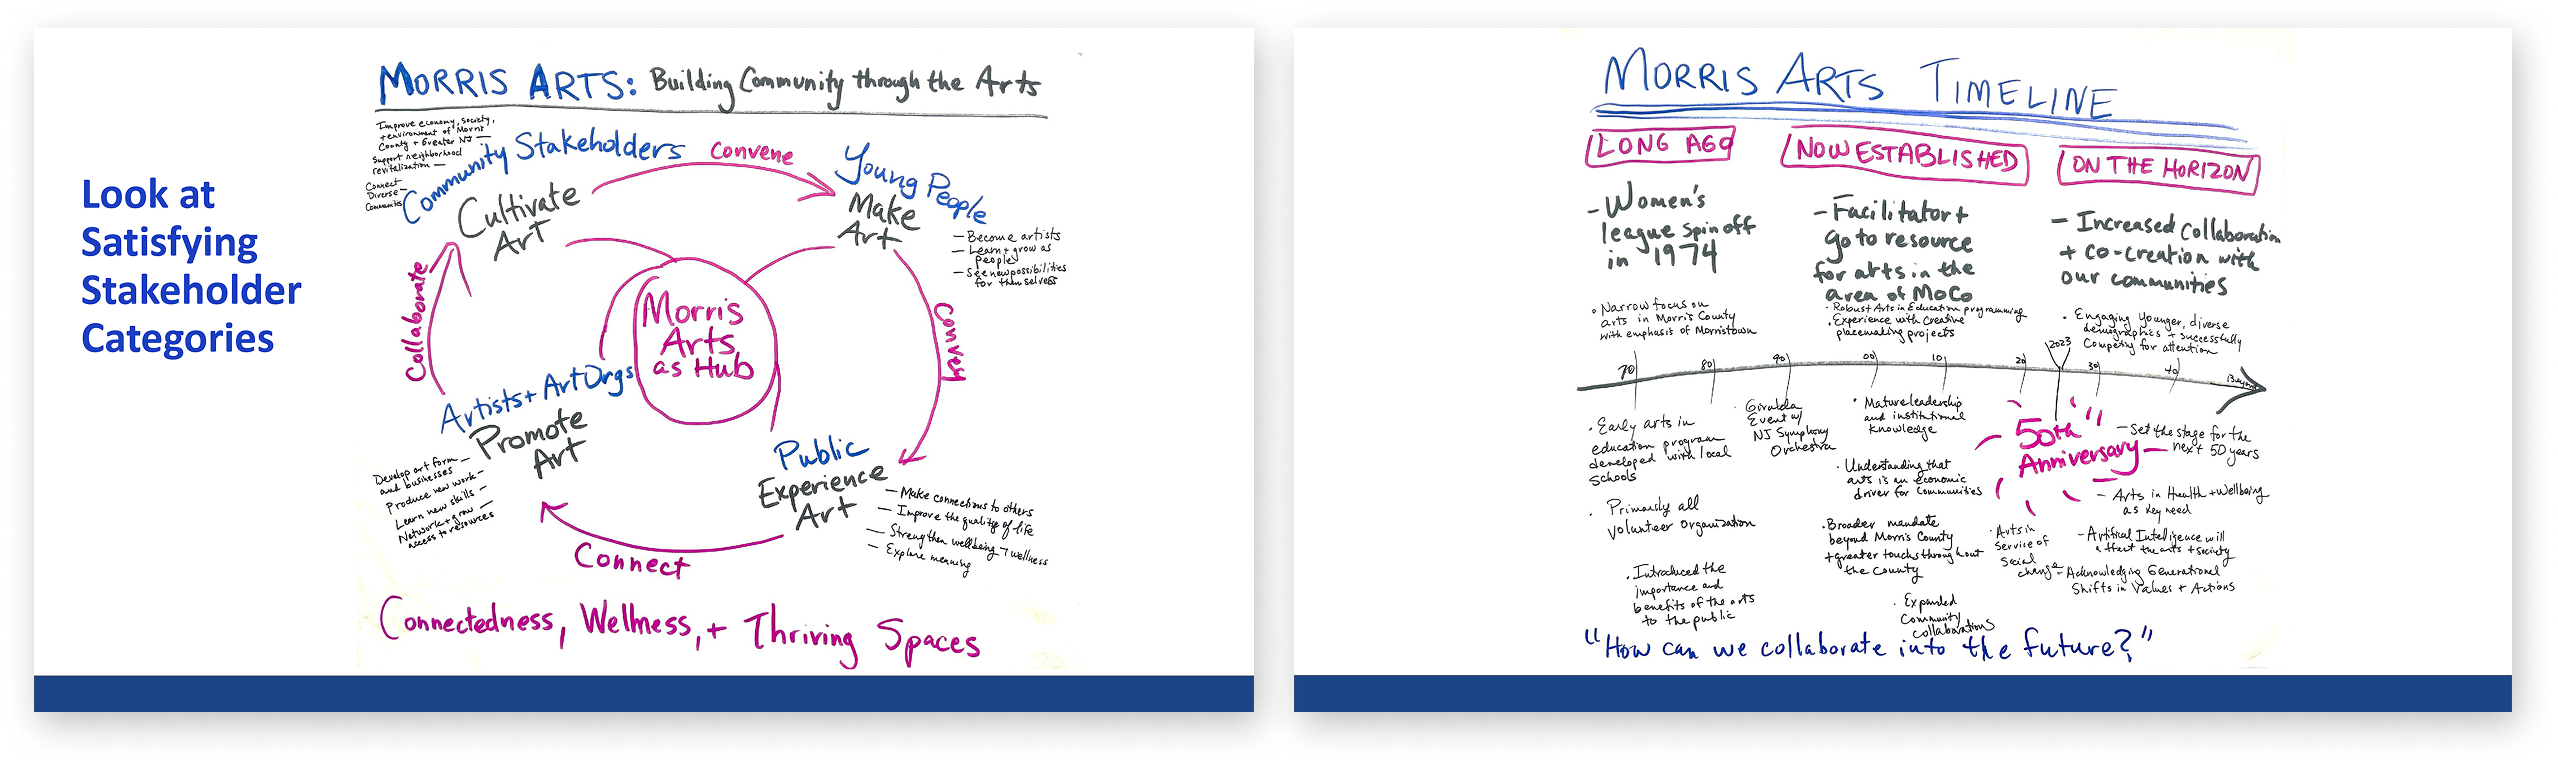 Look at
Satisfying
Stakeholder
Categories
MORRIS ARTS: Building Community through the Arts
Improve economy, society,
+ environment of Morris
County + Greater NJ —
Support neighborhood
revitalization —
Connect
Diverse —
Communities
Community Stakeholders
Cultivate
Art
Convene
Young People
Make
Art
— Become artists
— Learn + grow as
people
— See new possibilities
for themselves
Convey
Morris
Arts
as Hub
Collaborate
Artists + Art Orgs
Promote
Art
Develop art form —
and businesses
Produce new work —
Learn new skills —
Network + grow —
access to resources
Public
Experience
Art
— Make connections to others
— Improve the quality of life
— Strengthen wellbeing + wellness
— Explore meaning
Connect
Connectedness, Wellness, + Thriving Spaces
MORRIS ARTS TIMELINE
LONG AGO
NOW ESTABLISHED
ON THE HORIZON
- Women's
league spin off
in 1974
• Narrow focus on
arts in Morris County
with emphasis of Morristown
- Facilitator +
go to resource
for arts in the
area of MoCo
• Robust Arts in Education programming
• Experience with creative
placemaking projects
- Increased Collaboration
+ co-creation with
our communities
• Engaging Younger, diverse
demographics + successfully
Competing for attention
70 80 90 00 10 20 2023 30 40 Beyond
• Early arts in
education program
developed with local
schools
• Primarily all
volunteer organization
• Introduced the
importance and
benefits of the arts
to the public
• Giralda
Event w/
NJ Symphony
Orchestra
• Mature leadership
and institutional
knowledge
• Understanding that
arts is an economic
driver for communities
• Broader mandate
beyond Morris County
+ greater touch throughout
the County
• Expanded
Community
collaborations
50th
Anniversary
• Arts in
Service of
Social
change
— Set the stage for the
next 50 years
— Arts in Health + Wellbeing
as key need
— Artifical Intelligence will
affect the arts + society
— Acknowledging Generational
Shifts in Values + Actions
"How can we collaborate into the future?"